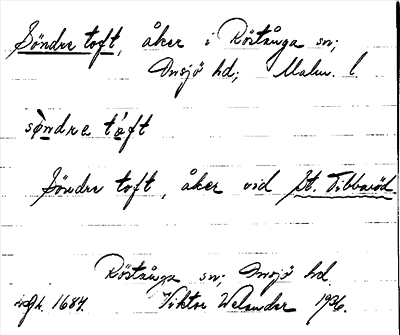 Söndre toft, åker i Röstånga sn;
Onsjö hd; Malm. l.
sǫ̀ndre tá̱ft
Söndre toft, åker vid St. Tibbaröd
Röstånga sn; Onsjö hd
1684. Viktor Welander 1936.